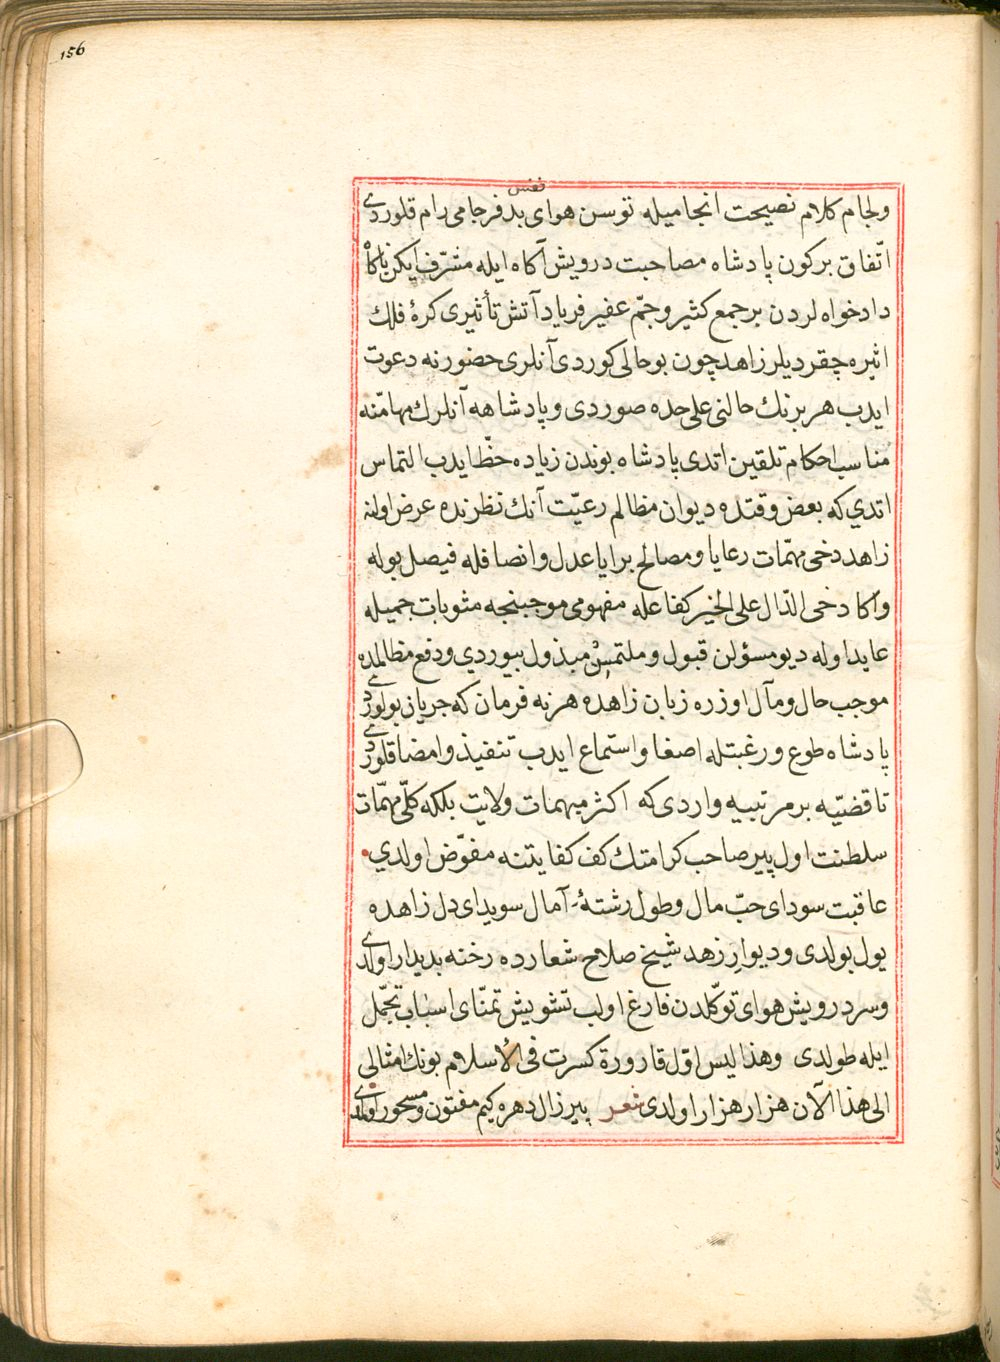 156
نفس
ولجام كلام نصيحت انجاميله توسن هواى بدفرجامى رام قلوردى
اتّفاق بركون پادشاه مصاحبت درويش آكاه ايله مشرّف ايكن ناكاه
دادخواه لردن بر جمع كثير وجمّ غفير فرياد آتش تأثيرى كرۀ فلك
اثيره چقرديلر زاهد چون بو حالى كوردى آنلرى حضورنه دعوت
ايدب هر برنك حالنى على حده صوردى و پادشاهه آنلرك مهامّنه
مناسب احكام تلقين اتدى پادشاه بوندن زياده حظّ ايدب التماس
اتدي كه بعض وقتده ديوان مظالم رعيّت آنك نظرنده عرض اولنه
زاهد دخى مهمّات رعايا و مصالح برايا عدل و انصافله فيصل بوله
واكا دخى الدّال على الخير كفاعله مفهومى موجبنجه مثوبات جميله
عايد اوله ديو مسؤلن قبول و ملتمسن مبذول بيوردي و دفع مظالمده
موجب حال و مآل اوزره زبان زاهده هر نه فرمان كه جريان بولوردى
پادشاه طوع و رغبتله اصغا و استماع ايدب تنفيذ و امضا قلوردى
تا قضيّه بر مرتبيه واردى كه اكثر مهمات ولايت بلكه كلّى مهمّات
سلطنت اول پير صاحب كرامتك كف كفايتنه مفوّض اولدي
عاقبت سوداى حبّ مال و طول رشتۀ آمال سويداى دل زاهده
يول بولدى و ديوار زهد شيخ صلاح شعارده رخنه پديدار اولدى
وسر درويش هواى توكّلدن فارغ اولب تشويش تمنّاى اسباب تجمّل
ايله طولدى وهذا ليس اوّل قارورة كسرت فى الاسلام بونك امثالى
الى هذا الآن هزار هزار اولدى شعر پير زال دهره كيم مفتون و مسحور اولدى